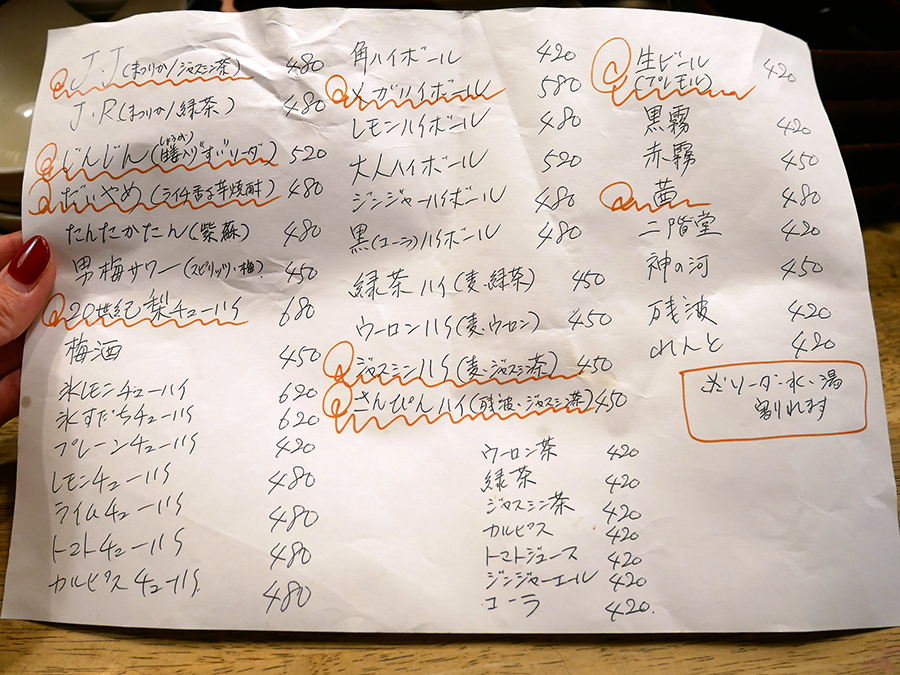 J.J(まつりか/ジャスミン茶) 480
J.R(まつりか/緑茶) 480
じんじん( 520
だいやめ(ライチ香る芋焼酎) 480
たんたかたん(紫蘇) 480
男梅サワー(スピリッツ・梅) 450
20世紀梨チューハイ 680
梅酒 450
氷レモンチューハイ 620
氷すだちチューハイ 620
プレーンチューハイ 420
レモンチューハイ 480
ライムチューハイ 480
トマトチューハイ 480
カルピスチューハイ 480
角ハイボール 420
メガハイボール 580
レモンハイボール 480
大人ハイボール 520
ジンジャーハイボール 480
黒(コーラ)ハイボール 480
緑茶ハイ(麦・緑茶) 450
ウーロンハイ(麦・ウーロン) 450
ジャスミンハイ(麦・ジャスミン茶) 450
さんぴんハイ(残波・ジャスミン茶) 450
ウーロン茶 420
緑茶 420
ジャスミン茶 420
カルピス 420
トマトジュース 420
ジンジャーエール 420
コーラ 420.
生ビール
(プレモル) 420
黒霧 420
赤霧 450
茜 480
二階堂 420
神の河 450
残波 420
れんと 420
ソーダ・水・湯
割れます